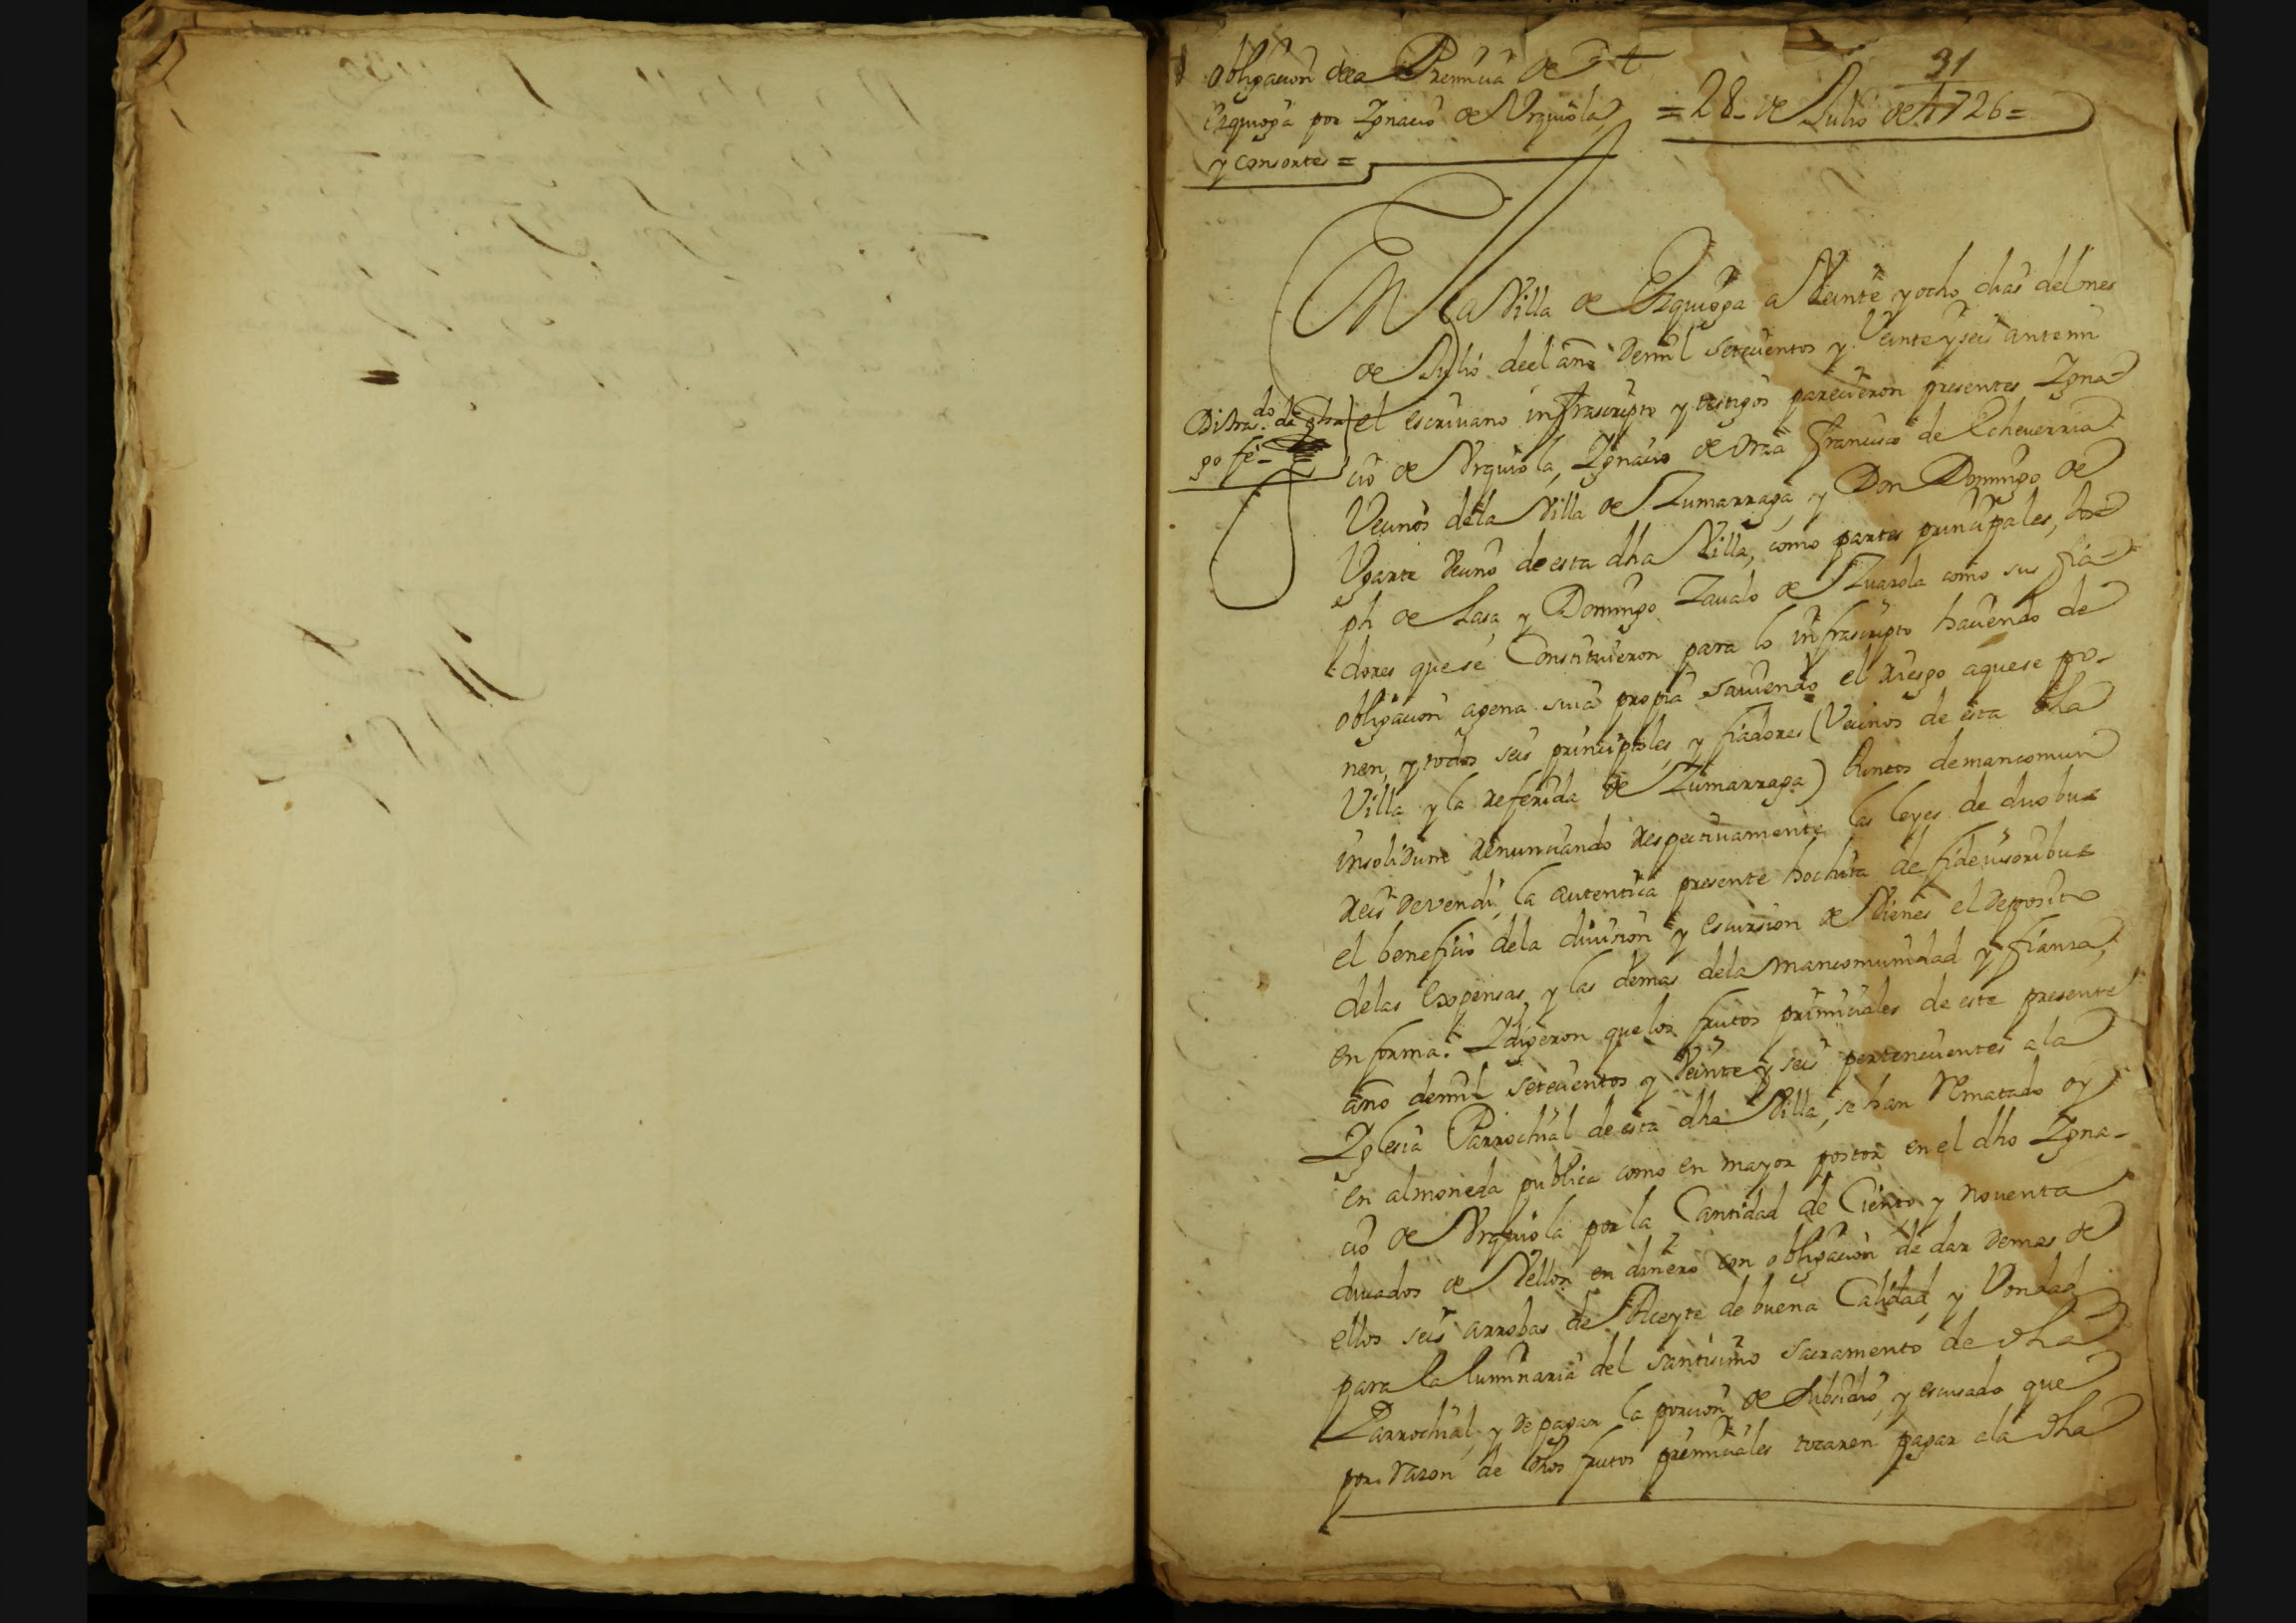 91
Obligacion dela Premicia de
Ezquioga por Ignacio de Vrquiola
y consortes =
= 28 de Julio de 1726 =
En la Villa de Ezquioga a Veinte y ocho dias del mes
de Julio deel año demil setecientos y Veinte y seis ante mi
el escriuano infrascripto y testigos parecieron presentes Igna-
cio de Vrquiola, Ignacio de Oria Francisco de Echeverria
Vecinos dela Villa de Zumarraga, y Don Domingo de
Vgarte Vecino de esta dha Villa, como partes principales, Jose
ph de Lasa y Domingo Zavalo de Zuazola como sus fia-
dores que se Constituieron para lo infrascripto haciendo de
obligacion agena suia propia saviendo el riesgo aquese po-
nen, y todos seis principales, y fiadores (Vecinos de esta dha
Villa y la referida de Zumarraga) Juntos demancomun
insolidum renunciando respectivamente las leyes de duobus
reis devendi, la autentica presente hochita de fideiusoribus
el beneficio dela diuision y escursion de Vienes el deposito
delas Expensas y las demas dela mancomunidad y fianza,
en forma. Y digeron que los frutos primiciales de este presente
año demil setecientos y Veinte y seis pertenecientes a la
Yglesia Parrochial de esta dha Villa, se han Rematado oy
en almoneda publica como en mayor postor en el dho Igna-
cio de Vrquiola por la Cantidad de Ciento y noventa
ducados de Vellon en dinero con obligacion de dar demas de
ellos seis arrobas de Aceyte de buena Calidad y Vondad
para la luminaria del santisimo sacramento de dha
Parrochial, y de pagar la porcion de Subsidio, y escusado que
por razon de dhos frutos premiciales tocaren pagar ala dha